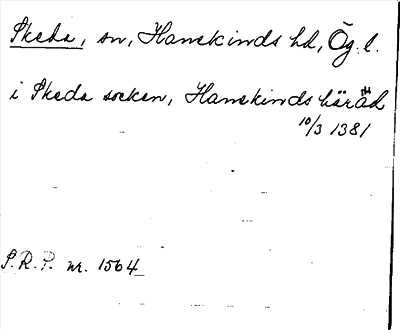 Skeda, sn, Hanekinds hd, Ög. l.
i Skeda socken, Hanekinds häräd
10/3 1381
S.R.P. nr. 1564